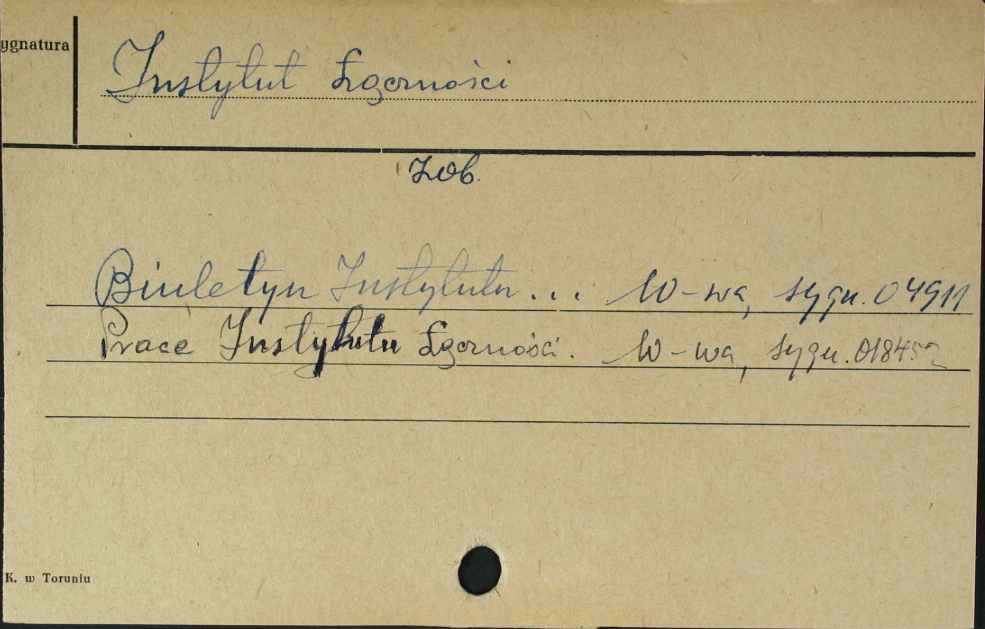 ygnatura
Instytut Łączności
Zob.
Biuletyn Instytutu... W-wa, sygn. 04911
Prace Instytutu Łączności. W-wa, sygn.
K. w Toruniu